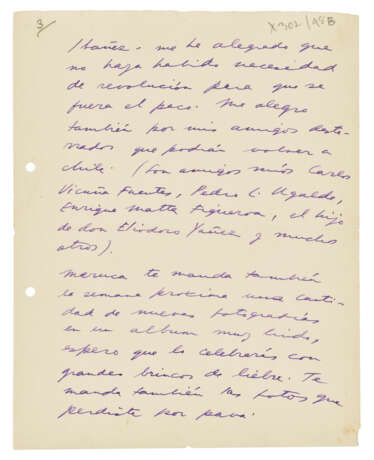 3/
X302/98B
Ibañez. me he alegrado que
no haya habido necesidad
de revolución para que se
fuera el paco. Me alegro
también por mis amigos deste-
rrados que podrán volver a
Chile. (Son amigos míos Carlos
Vicuña Fuentes, Pedro L. Ugalde,
Enrique Matta Figueroa, el hijo
de don Eliodoro Yañez y muchos
otros).
Maruca te manda también
la semana proxima una canti-
dad de nuevas fotografías
en un album muy lindo,
espero que lo celebrarás con
grandes brincos de liebre. Te
manda también las fotos que
perdiste por pava.